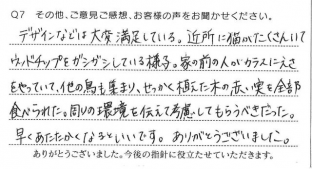 Q7 その他、ご意見ご感想、お客様の声をお聞かせください。
デザインなどは大変満足している。近所に猫がたくさんいて
ウッドチップをガシガシしている様子。家の前の人がカラスにえさ
をやっていて、他の鳥も集まり、せっかく植えた木の赤い実を全部
食べられた。周りの環境を伝えて考慮してもらうべきだった。
早くあたたかくなるといいです。ありがとうございました。
ありがとうございました。今後の指針に役立たせていただきます。